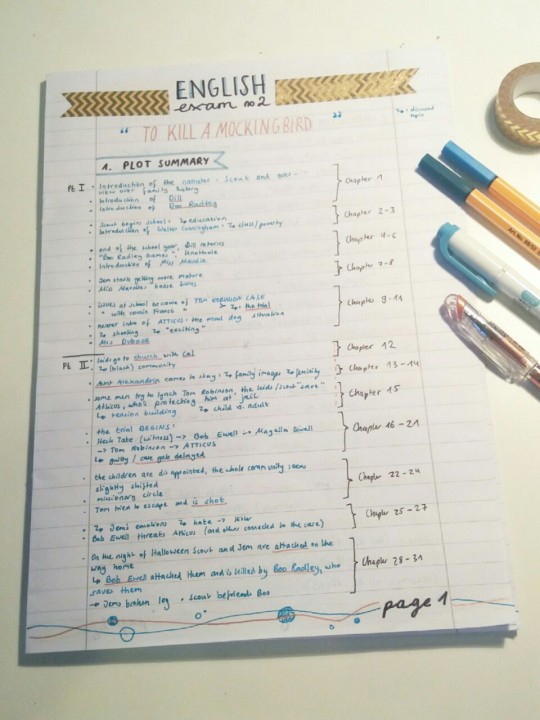 ENGLISH
exam no 2
" TO KILL A MOCKINGBIRD "
: discussed
topic
1. PLOT SUMMARY
Pt I
Introduction of the narrator: Scout and
view over family history
Introduction of Dill
Introduction of Boo Radley
Chapter 1
Scout begins school: education
Introduction of Walter Cunningham: class/poverty
Chapter 2-3
end of the school year, Dill returns
"Boo Radley Games":
Introduction of Miss Maudie
Chapter 4-6
Jem starts getting more mature
Miss Maudies house burns
Chapter 7-8
issues at school because of TOM ROBINSON CASE
" with cousin Francis : the trial
nearer idea of ATTICUS: the mad dog situation
shooting "exciting"
Mrs Dubose
Chapter 9-11
Pt II
kids go to church with Cal
(black) community
Chapter 12
Aunt Alexandra comes to stay: family images
Chapter 13-14
some men try to lynch Tom Robinson, the kids/scout "save"
Atticus, who's protecting him at jail
↳ tension building child vs. adult
Chapter 15
the trial BEGINS:
Heck Tate (witness) → Bob Ewell → Mayella Ewell
→ Tom Robinson → ATTICUS
↳ guilty / case gets delayed
Chapter 16-21
the children are disappointed, the whole community seems
slightly shifted
missionary circle
Tom tried to escape and is shot
Chapter 22-24
Jems emotions hate → Hitler
Bob Ewell threats Atticus (and others connected to the case)
Chapter 25-27
On the night of Halloween Scout and Jem are attacked on the
way home
↳ Bob Ewell attacked them and is killed by Boo Radley, who
saves them
→ Jems broken leg • Scout befriends Boo
Chapter 28-31
page 1